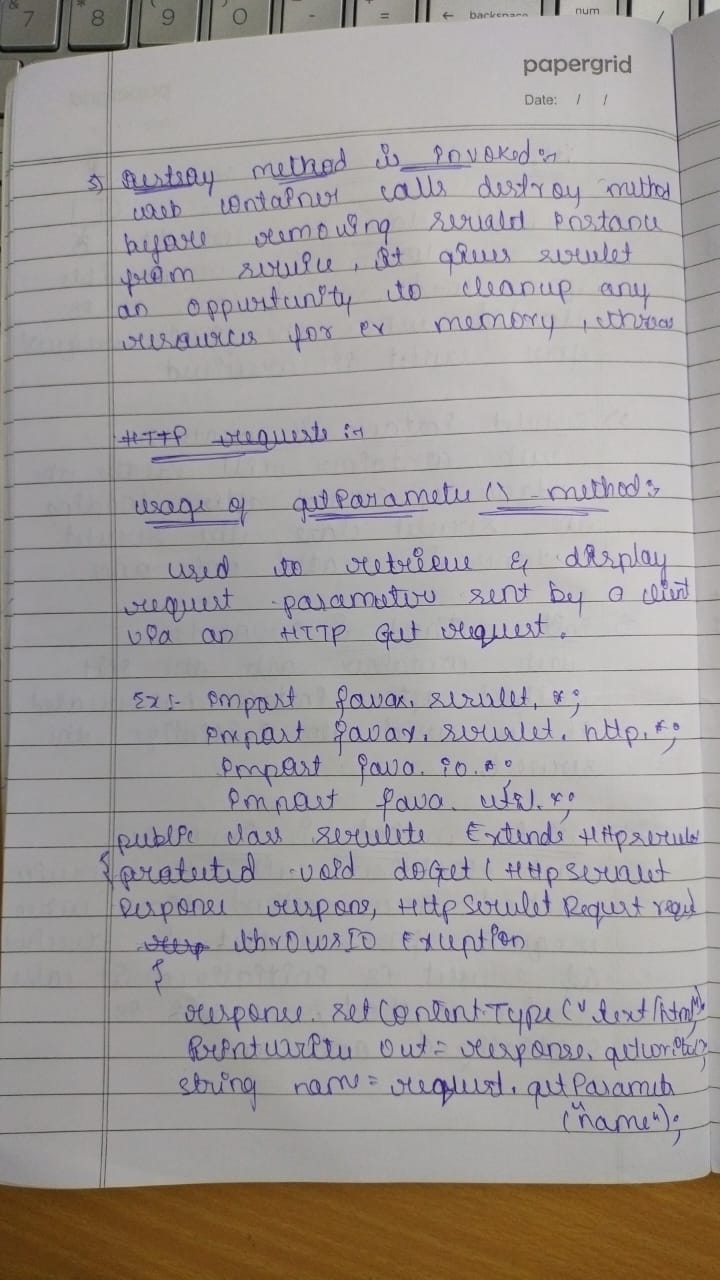 7 8 9 0 - = ← backspace num /
papergrid
Date: / /
5) Destroy method is invoked :-
web container calls destroy method
before removing servlet instance
from service, it gives servlet
an oppurtunity to cleanup any
resources for ex memory, threas
HTTP requests :-
usage of getParameter () - method :-
used to retrieve & display
request parameters sent by a client
via an HTTP Get request.
Ex :- import javax. servlet. *;
import javax. servlet. http. *;
import java. io. *;
import java. util. *;
public class servlete Extends HttpServlet
{ protected void doGet ( HttpServlet
Response respons, HttpServlet Request reqst
throwsIO Exception
{
response. setContent.Type ("text/html");
PrintWriter out = response. getwriter();
string name = request. getParameter
("name");